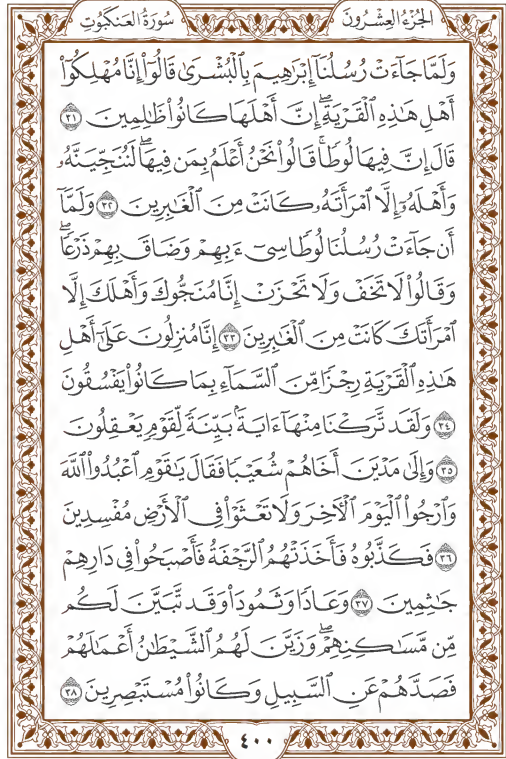 الجُزْءُ العِشْرُونَ
سُورَةُ العَنكَبُوتِ
وَلَمَّا جَآءَتۡ رُسُلُنَآ إِبۡرَٰهِيمَ بِٱلۡبُشۡرَىٰ قَالُوٓاْ إِنَّا مُهۡلِكُوٓاْ
أَهۡلِ هَٰذِهِ ٱلۡقَرۡيَةِۖ إِنَّ أَهۡلَهَا كَانُواْ ظَٰلِمِينَ ٣١
قَالَ إِنَّ فِيهَا لُوطٗاۚ قَالُواْ نَحۡنُ أَعۡلَمُ بِمَن فِيهَاۖ لَنُنَجِّيَنَّهُۥ
وَأَهۡلَهُۥٓ إِلَّا ٱمۡرَأَتَهُۥ كَانَتۡ مِنَ ٱلۡغَٰبِرِينَ ٣٢ وَلَمَّآ
أَن جَآءَتۡ رُسُلُنَا لُوطٗا سِيٓءَ بِهِمۡ وَضَاقَ بِهِمۡ ذَرۡعٗاۖ
وَقَالُواْ لَا تَخَفۡ وَلَا تَحۡزَنۡ إِنَّا مُنَجُّوكَ وَأَهۡلَكَ إِلَّا
ٱمۡرَأَتَكَ كَانَتۡ مِنَ ٱلۡغَٰبِرِينَ ٣٣ إِنَّا مُنزِلُونَ عَلَىٰٓ أَهۡلِ
هَٰذِهِ ٱلۡقَرۡيَةِ رِجۡزٗا مِّنَ ٱلسَّمَآءِ بِمَا كَانُواْ يَفۡسُقُونَ
٣٤ وَلَقَد تَّرَكۡنَا مِنۡهَآ ءَايَةَۢ بَيِّنَةٗ لِّقَوۡمٖ يَعۡقِلُونَ
٣٥ وَإِلَىٰ مَدۡيَنَ أَخَاهُمۡ شُعَيۡبٗا فَقَالَ يَٰقَوۡمِ ٱعۡبُدُواْ ٱللَّهَ
وَٱرۡجُواْ ٱلۡيَوۡمَ ٱلۡأٓخِرَ وَلَا تَعۡثَوۡاْ فِي ٱلۡأَرۡضِ مُفۡسِدِينَ
٣٦ فَكَذَّبُوهُ فَأَخَذَتۡهُمُ ٱلرَّجۡفَةُ فَأَصۡبَحُواْ فِي دَارِهِمۡ
جَٰثِمِينَ ٣٧ وَعَادٗا وَثَمُودَاْ وَقَد تَّبَيَّنَ لَكُم
مِّن مَّسَٰكِنِهِمۡۖ وَزَيَّنَ لَهُمُ ٱلشَّيۡطَٰنُ أَعۡمَٰلَهُمۡ
فَصَدَّهُمۡ عَنِ ٱلسَّبِيلِ وَكَانُواْ مُسۡتَبۡصِرِينَ ٣٨
٤٠٠